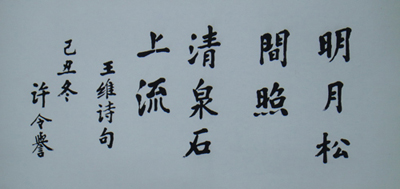 明月松
間照
清泉石
上流
王维诗句
己丑冬
许令誉